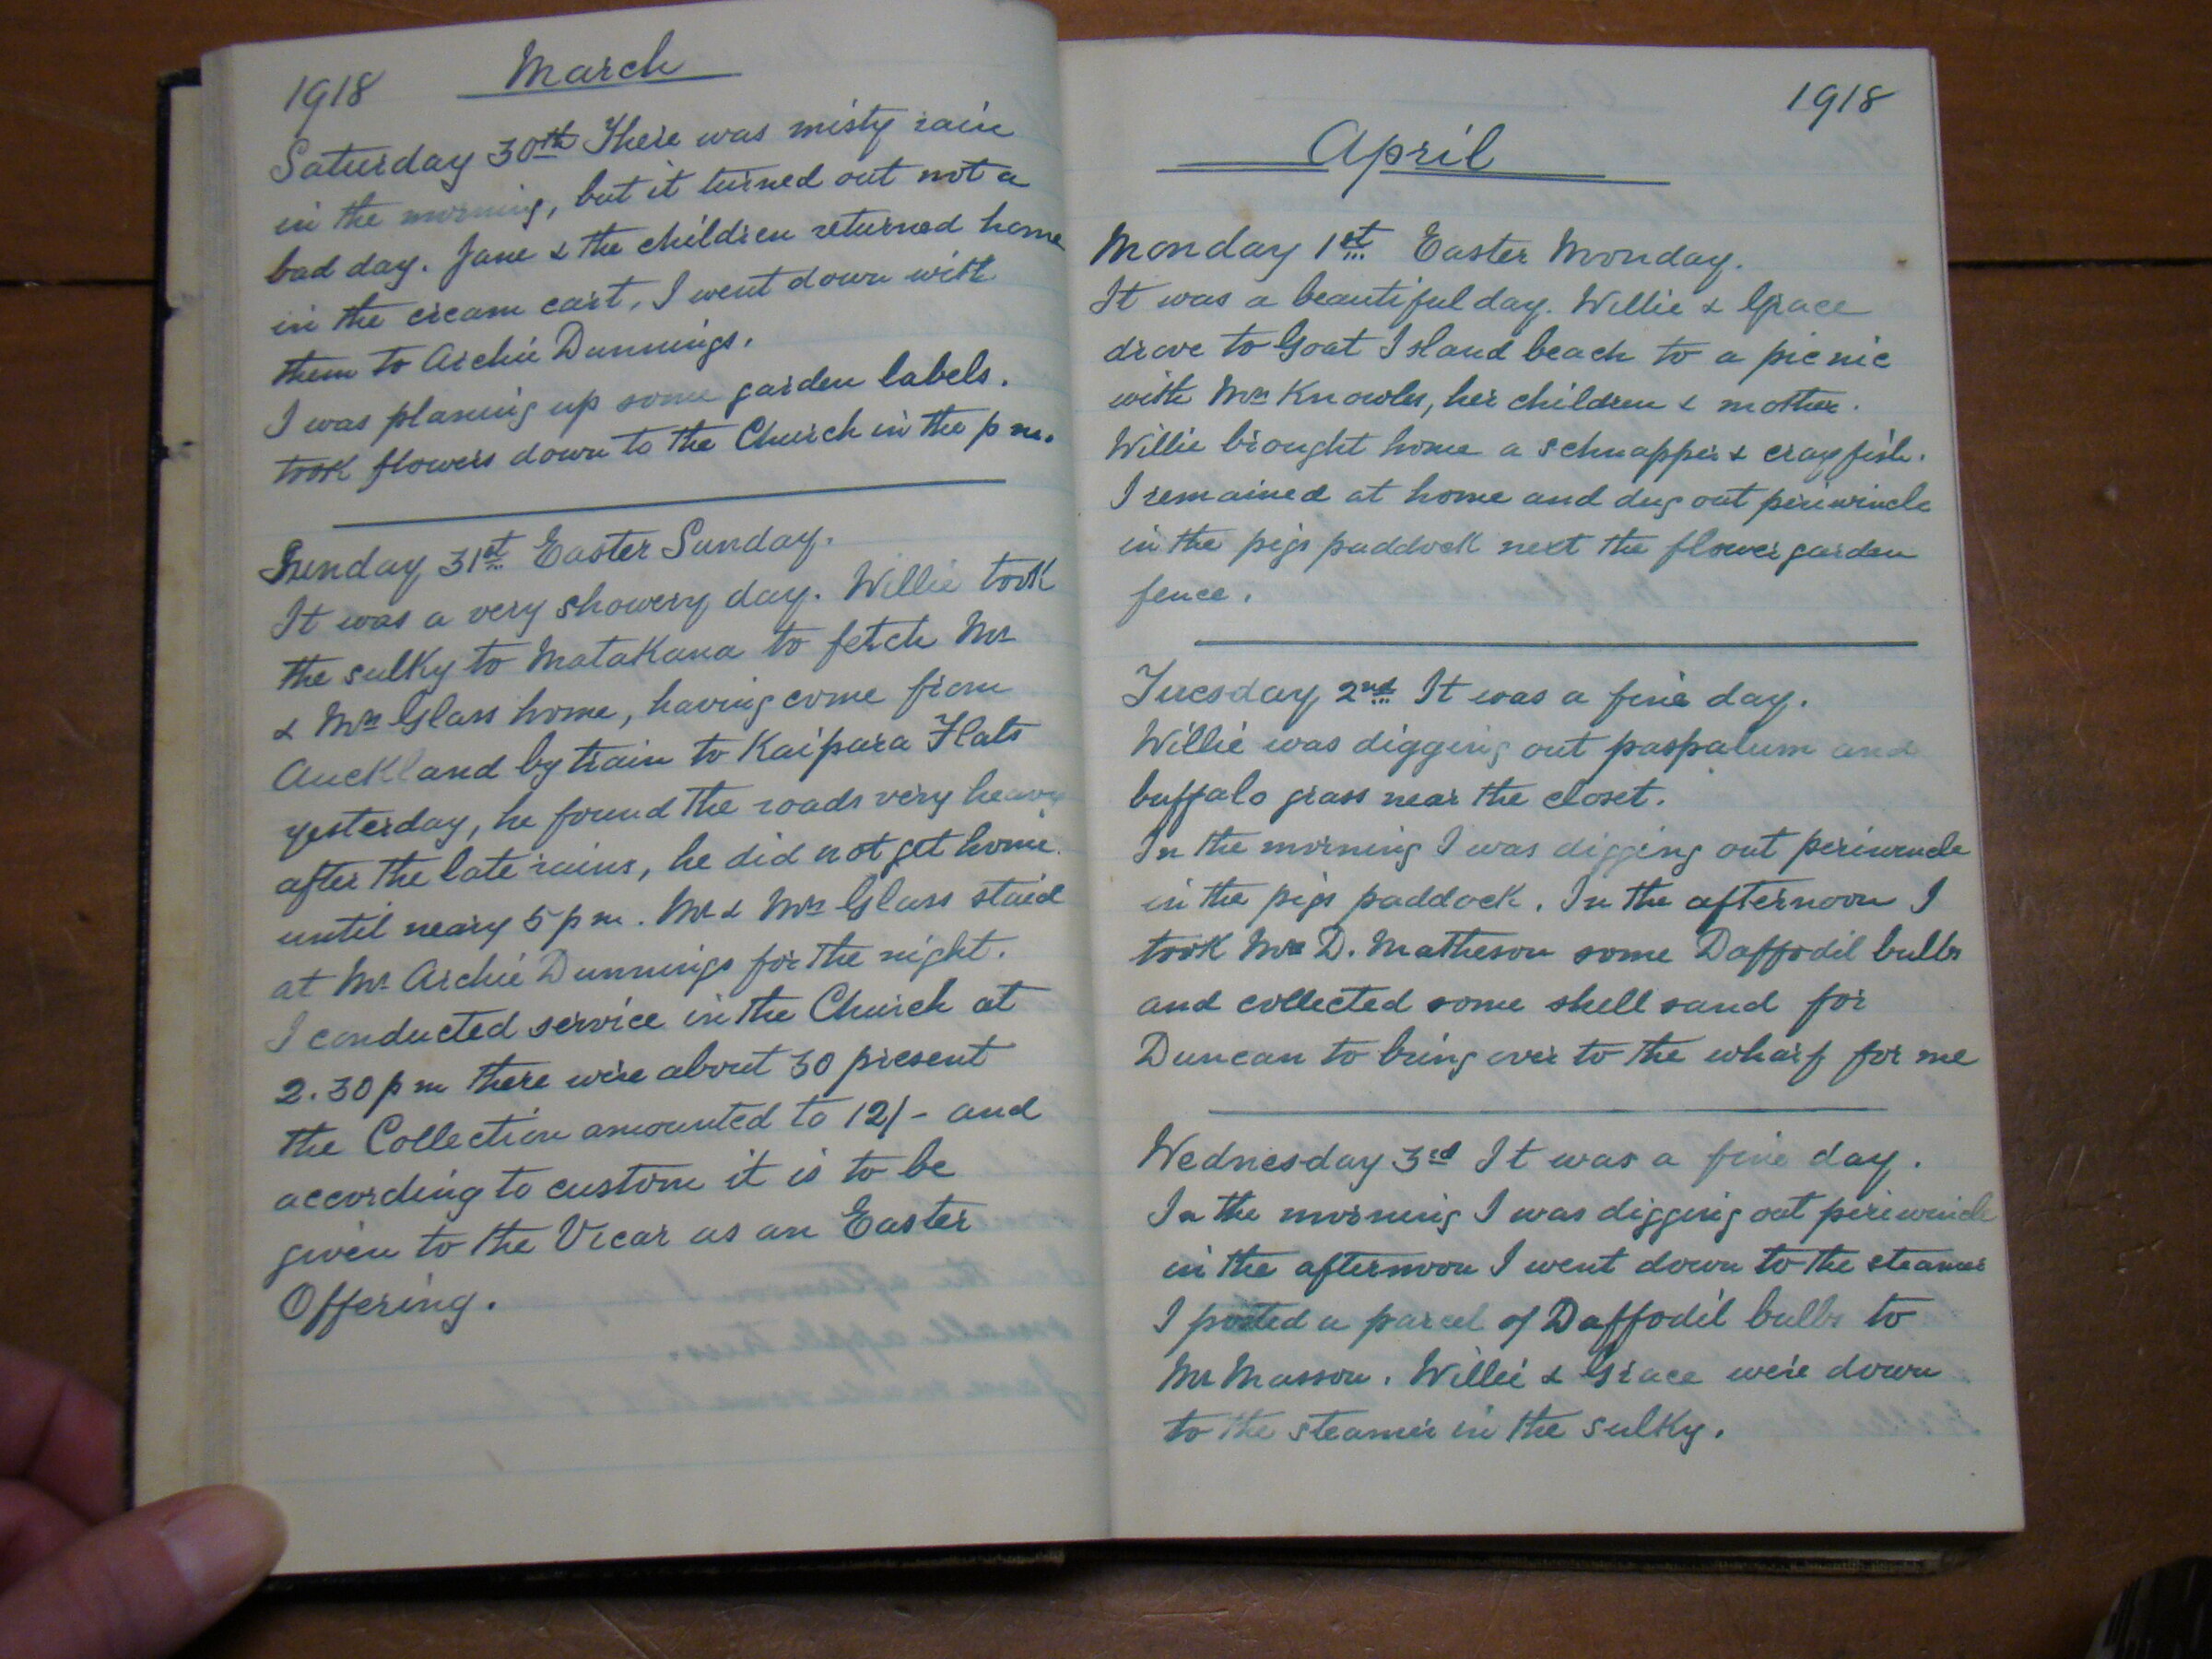 1918 March
Saturday 30th There was misty rain
in the morning, but it turned out not a
bad day. Jane & the children returned home
in the cream cart, I went down with
them to Archie Dunnings.
I was planing up some garden labels.
took flowers down to the Church in the p m.
Sunday 31st Easter Sunday.
It was a very showery day. Willie took
the sulky to Matakana to fetch Mr
& Mrs Glass home, having come from
Auckland by train to Kaipara Flats
yesterday, he found the roads very heavy
after the late rains, he did not get home
until neary 5 p m. Mr & Mrs Glass staid
at Mr Archie Dunnings for the night.
I conducted service in the Church at
2.30 p m there were about 30 present
the Collection amounted to 12/- and
according to custom it is to be
given to the Vicar as an Easter
Offering.
1918
April
Monday 1st Easter Monday.
It was a beautiful day. Willie & Grace
drove to Goat Island beach to a picnic
with Mrs Knowles, her children & mother.
Willie brought home a schnapper & crayfish.
I remained at home and dug out periwincle
in the pigs paddock next the flower garden
fence.
Tuesday 2nd It was a fine day.
Willie was digging out paspalum and
buffalo grass near the closet.
In the morning I was digging out periwincle
in the pigs paddock. In the afternoon I
took Mrs D. Matheson some Daffodil bulbs
and collected some shell sand for
Duncan to bring over to the wharf for me
Wednesday 3rd It was a fine day.
In the morning I was digging out periwincle
in the afternoon I went down to the steamer
I posted a parcel of Daffodil bulbs to
Mr Masson. Willie & Grace were down
to the steamer in the sulky.